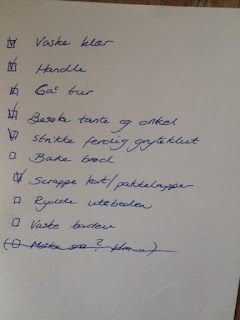 Vaske klær
Handle
Gå tur
Besøke tante og onkel
Strikke ferdig gryteklut
Bake brød
Scrappe kort/pakkelapper
Rydde uteboden
Vaske badene
(Måke snø? Hmm)